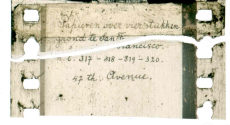 Papieren over vier stukken
grond te San
Francisco.
817 - 818 - 819 - 820.
47th Avenue.